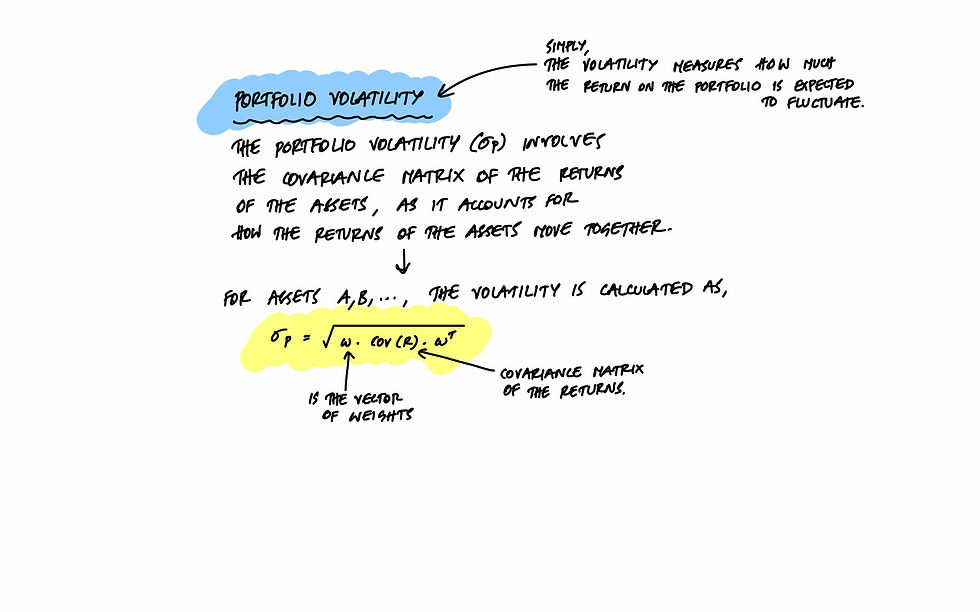 SIMPLY,
THE VOLATILITY MEASURES HOW MUCH
THE RETURN ON THE PORTFOLIO IS EXPECTED
TO FLUCTUATE.
PORTFOLIO VOLATILITY
THE PORTFOLIO VOLATILITY (σp) INVOLVES
THE COVARIANCE MATRIX OF THE RETURNS
OF THE ASSETS, AS IT ACCOUNTS FOR
HOW THE RETURNS OF THE ASSETS MOVE TOGETHER.
FOR ASSETS A,B,..., THE VOLATILITY IS CALCULATED AS,
σp = √(ω · COV(R) · ωᵀ)
COVARIANCE MATRIX
OF THE RETURNS.
IS THE VECTOR
OF WEIGHTS